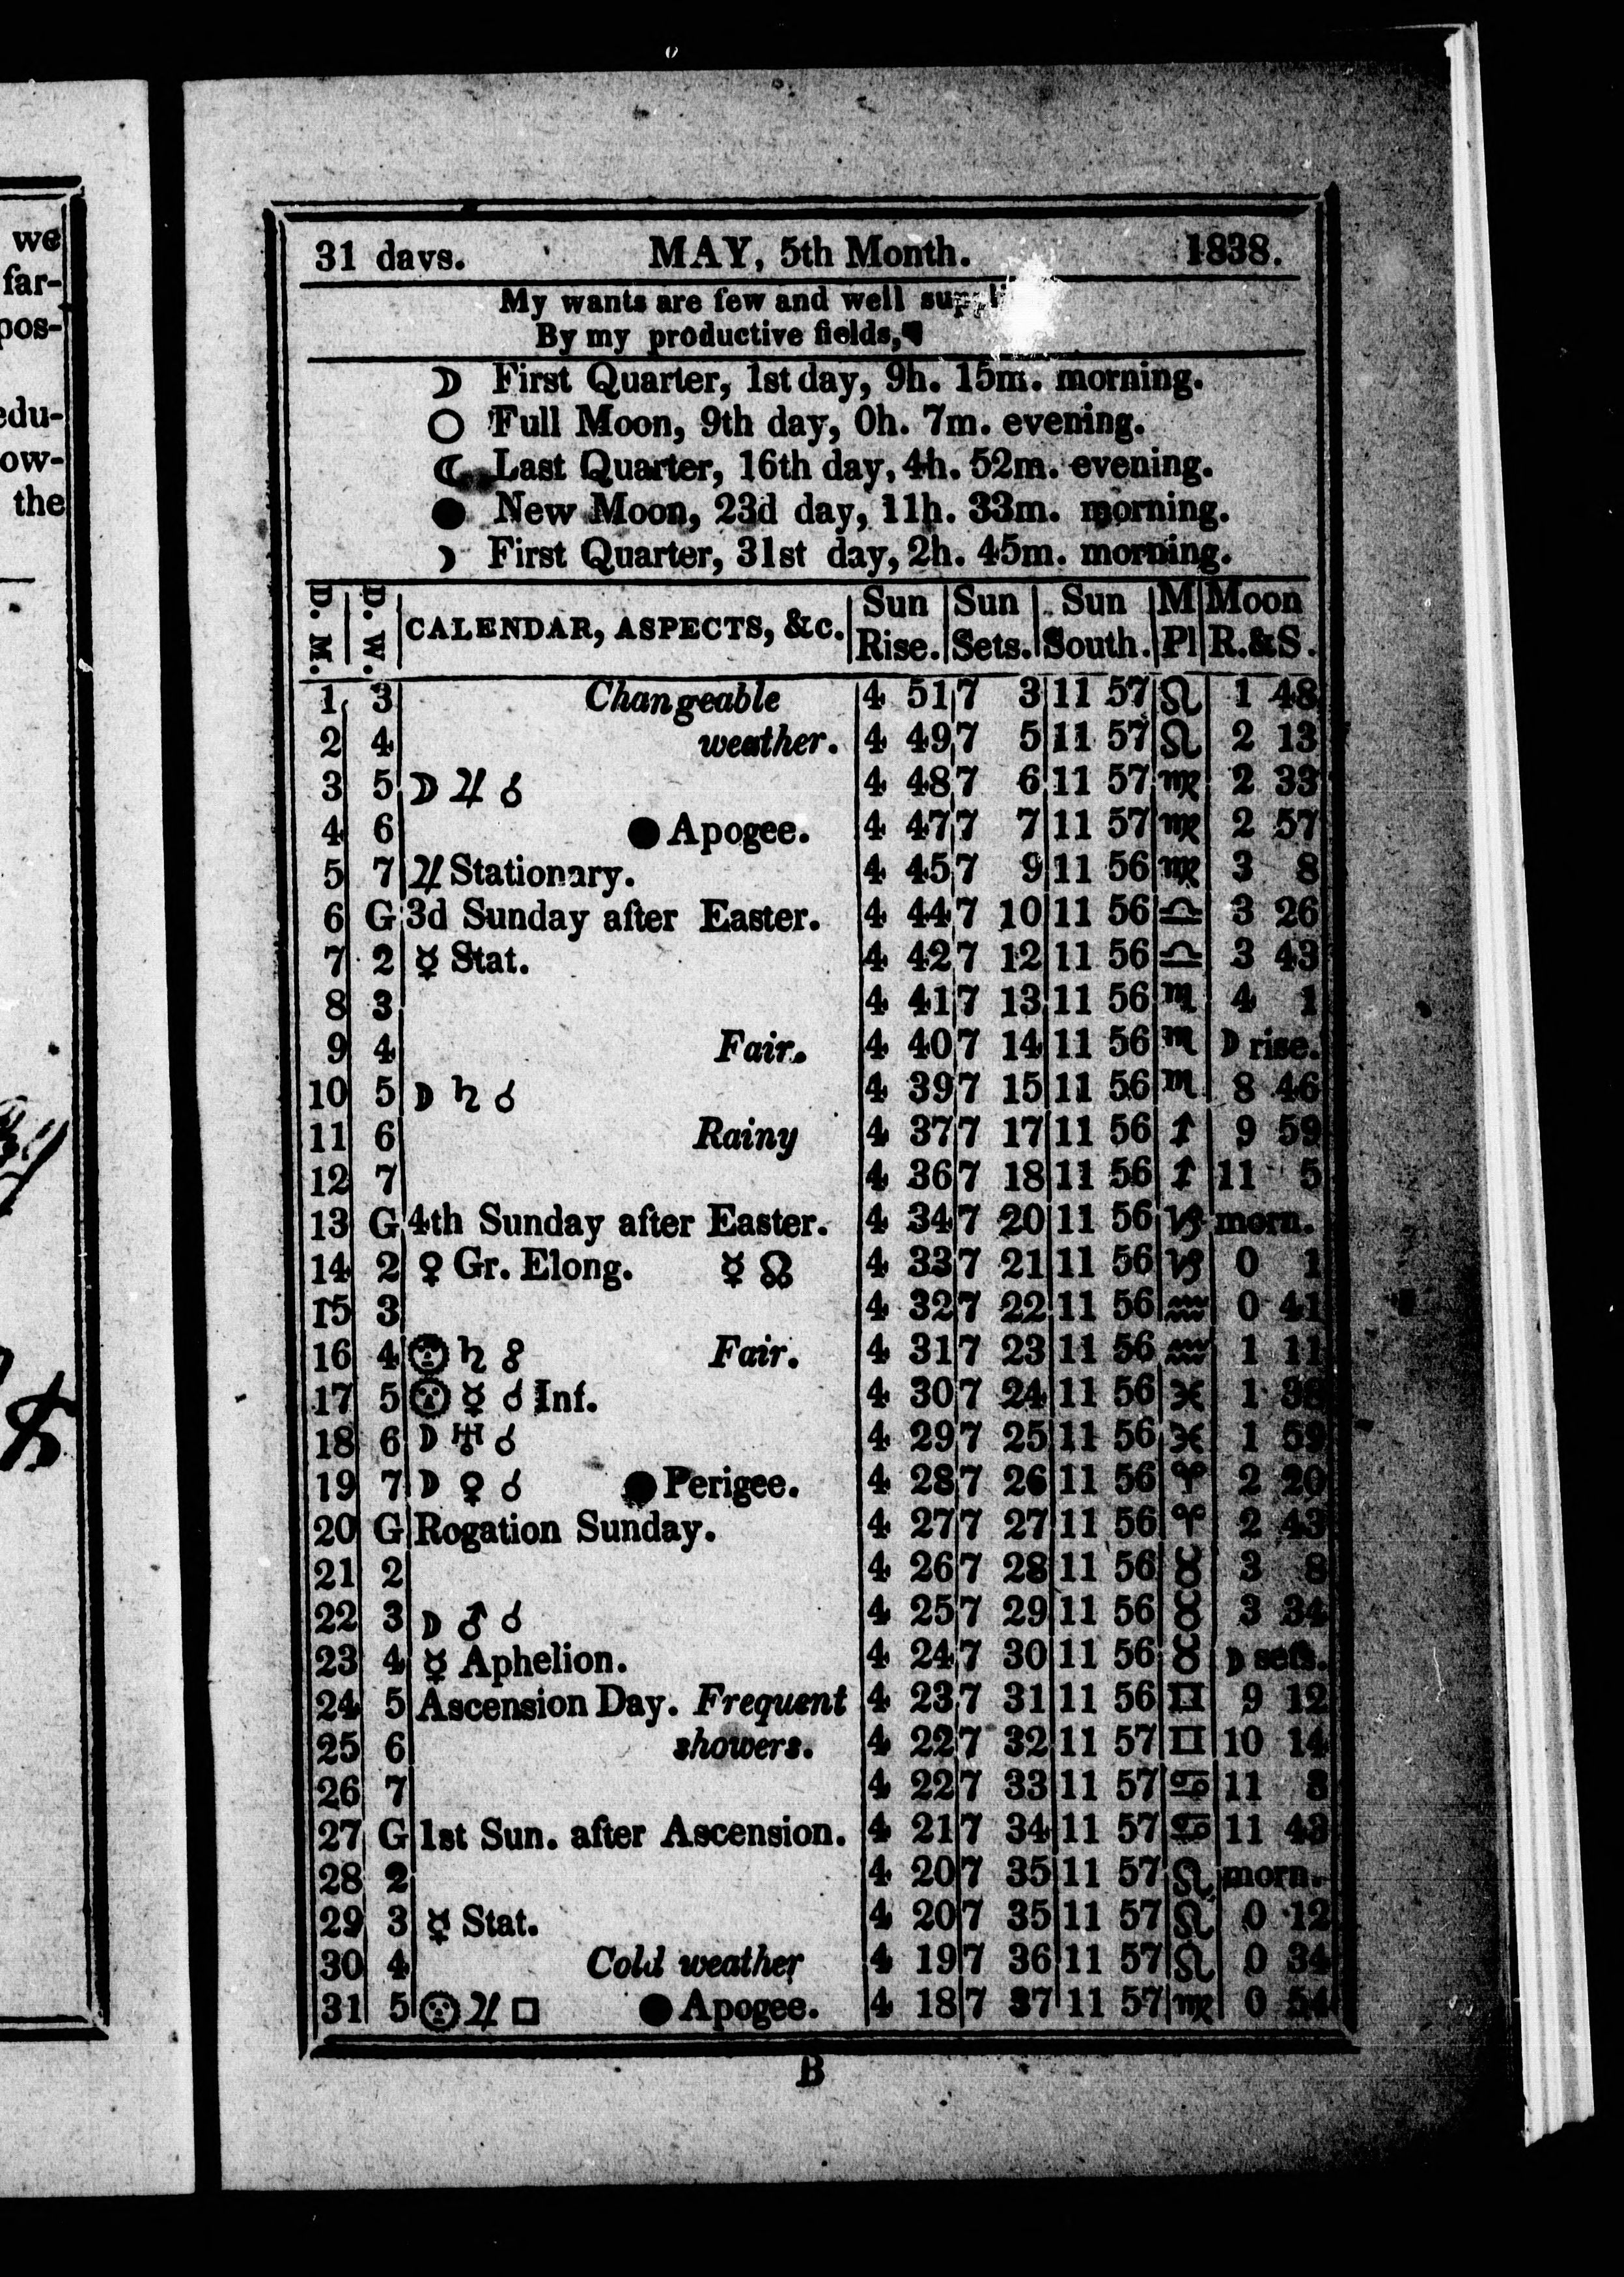 we
far-
pos-
edu-
ow-
the
31 days. MAY, 5th Month. 1838.
My wants are few and well
By my productive fields,
☽ First Quarter, 1st day, 9h. 15m. morning.
○ Full Moon, 9th day, 0h. 7m. evening.
☾ Last Quarter, 16th day, 4h. 52m. evening.
● New Moon, 23d day, 11h. 33m. morning.
☽ First Quarter, 31st day, 2h. 45m. morning.
D. M. D. W. CALENDAR, ASPECTS, &c. Sun Rise. Sun Sets. Sun South. M Pl Moon R.&S.
1 3 Changeable 4 51 7 3 11 57 ♌ 1 48
2 4 weather. 4 49 7 5 11 57 ♌ 2 13
3 5 ☽ ♃ ☌ 4 48 7 6 11 57 ♍ 2 33
4 6 ● Apogee. 4 47 7 7 11 57 ♍ 2 57
5 7 ♃ Stationary. 4 45 7 9 11 56 ♍ 3 8
6 G 3d Sunday after Easter. 4 44 7 10 11 56 ♎ 3 26
7 2 ☿ Stat. 4 42 7 12 11 56 ♎ 3 43
8 3 4 41 7 13 11 56 ♏ 4 1
9 4 Fair. 4 40 7 14 11 56 ♏ ☽ rise.
10 5 ☽ ♄ ☌ 4 39 7 15 11 56 ♏ 8 46
11 6 Rainy 4 37 7 17 11 56 ♐ 9 59
12 7 4 36 7 18 11 56 ♐ 11 5
13 G 4th Sunday after Easter. 4 34 7 20 11 56 ♑ morn.
14 2 ♀ Gr. Elong. ☿ ☊ 4 33 7 21 11 56 ♑ 0 1
15 3 4 32 7 22 11 56 ♒ 0 41
16 4 ☉ ♄ ☍ Fair. 4 31 7 23 11 56 ♒ 1 11
17 5 ☉ ☿ ☌ Inf. 4 30 7 24 11 56 ♓ 1 38
18 6 ☽ ♅ ☌ 4 29 7 25 11 56 ♓ 1 59
19 7 ☽ ♀ ☌ ● Perigee. 4 28 7 26 11 56 ♈ 2 20
20 G Rogation Sunday. 4 27 7 27 11 56 ♈ 2 43
21 2 4 26 7 28 11 56 ♉ 3 8
22 3 ☽ ♂ ☌ 4 25 7 29 11 56 ♉ 3 34
23 4 ☿ Aphelion. 4 24 7 30 11 56 ♉ ☽ sets.
24 5 Ascension Day. Frequent 4 23 7 31 11 56 ♊ 9 12
25 6 showers. 4 22 7 32 11 57 ♊ 10 14
26 7 4 22 7 33 11 57 ♋ 11 8
27 G 1st Sun. after Ascension. 4 21 7 34 11 57 ♋ 11 43
28 2 4 20 7 35 11 57 ♌ morn.
29 3 ☿ Stat. 4 20 7 35 11 57 ♌ 0 12
30 4 Cold weather 4 19 7 36 11 57 ♌ 0 34
31 5 ☉ ♃ □ ● Apogee. 4 18 7 37 11 57 ♍ 0 54
B